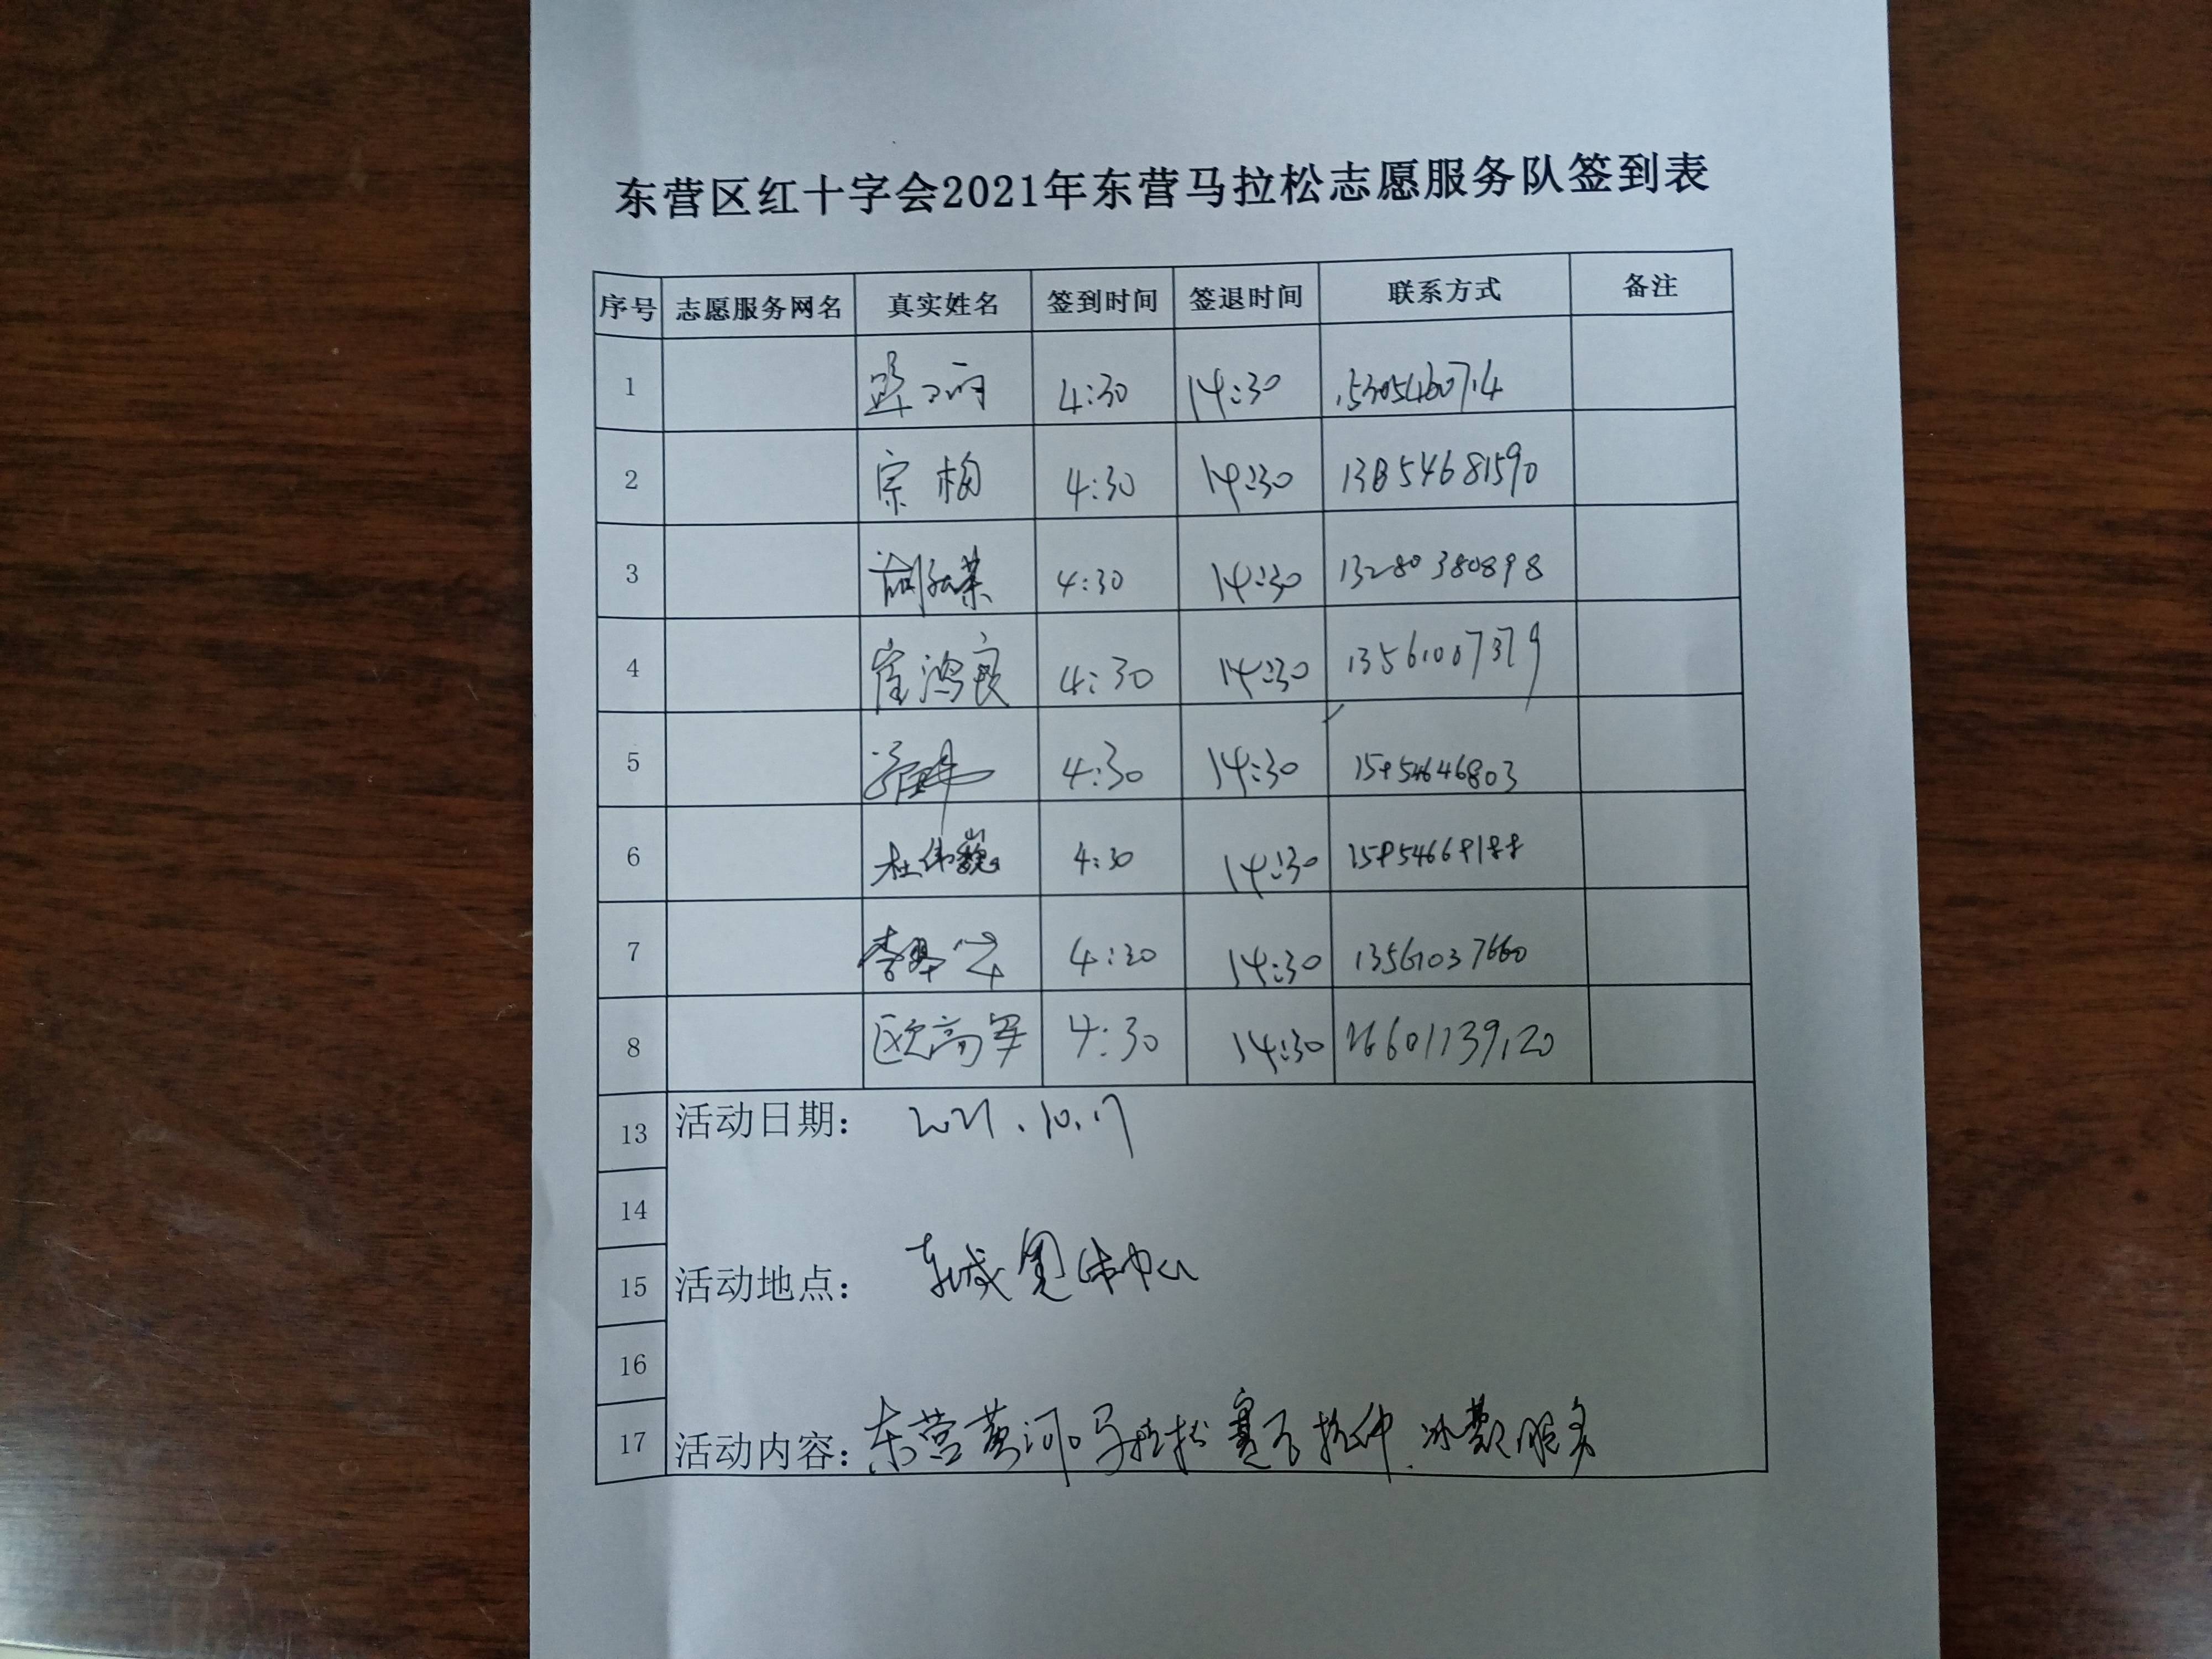 东营区红十字会2021年东营马拉松志愿服务队签到表
序号 志愿服务网名 真实姓名 签到时间 签退时间 联系方式 备注
1 4:30 14:30
2 宗梅 4:30 14:30 13854681590
3 4:30 14:30 13280380898
4 崔鸿良 4:30 14:30 13561007379
5 4:30 14:30 15954646803
6 杜伟巍 4:30 14:30
7 4:30 14:30 13561037660
8 欧高军 4:30 14:30
13 活动日期： 2021.10.17
14
15 活动地点： 东城 体中心
16
17 活动内容：东营黄河马拉松赛 拉伸.冰敷服务